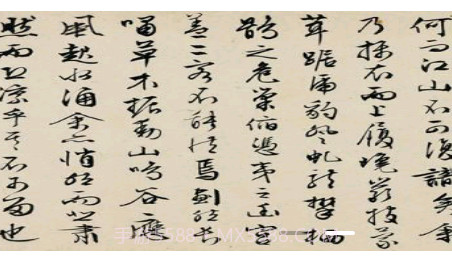 何而江山不可復識矣余
乃攝衣而上履巉岩披蒙
茸踞虎豹登虬龍攀栖
鶻之危巢俯馮夷之幽宮
蓋二客不能從焉劃然長
嘯草木振動山鳴谷應
風起水涌余亦悄然而悲肅
然而恐凜乎其不可留也